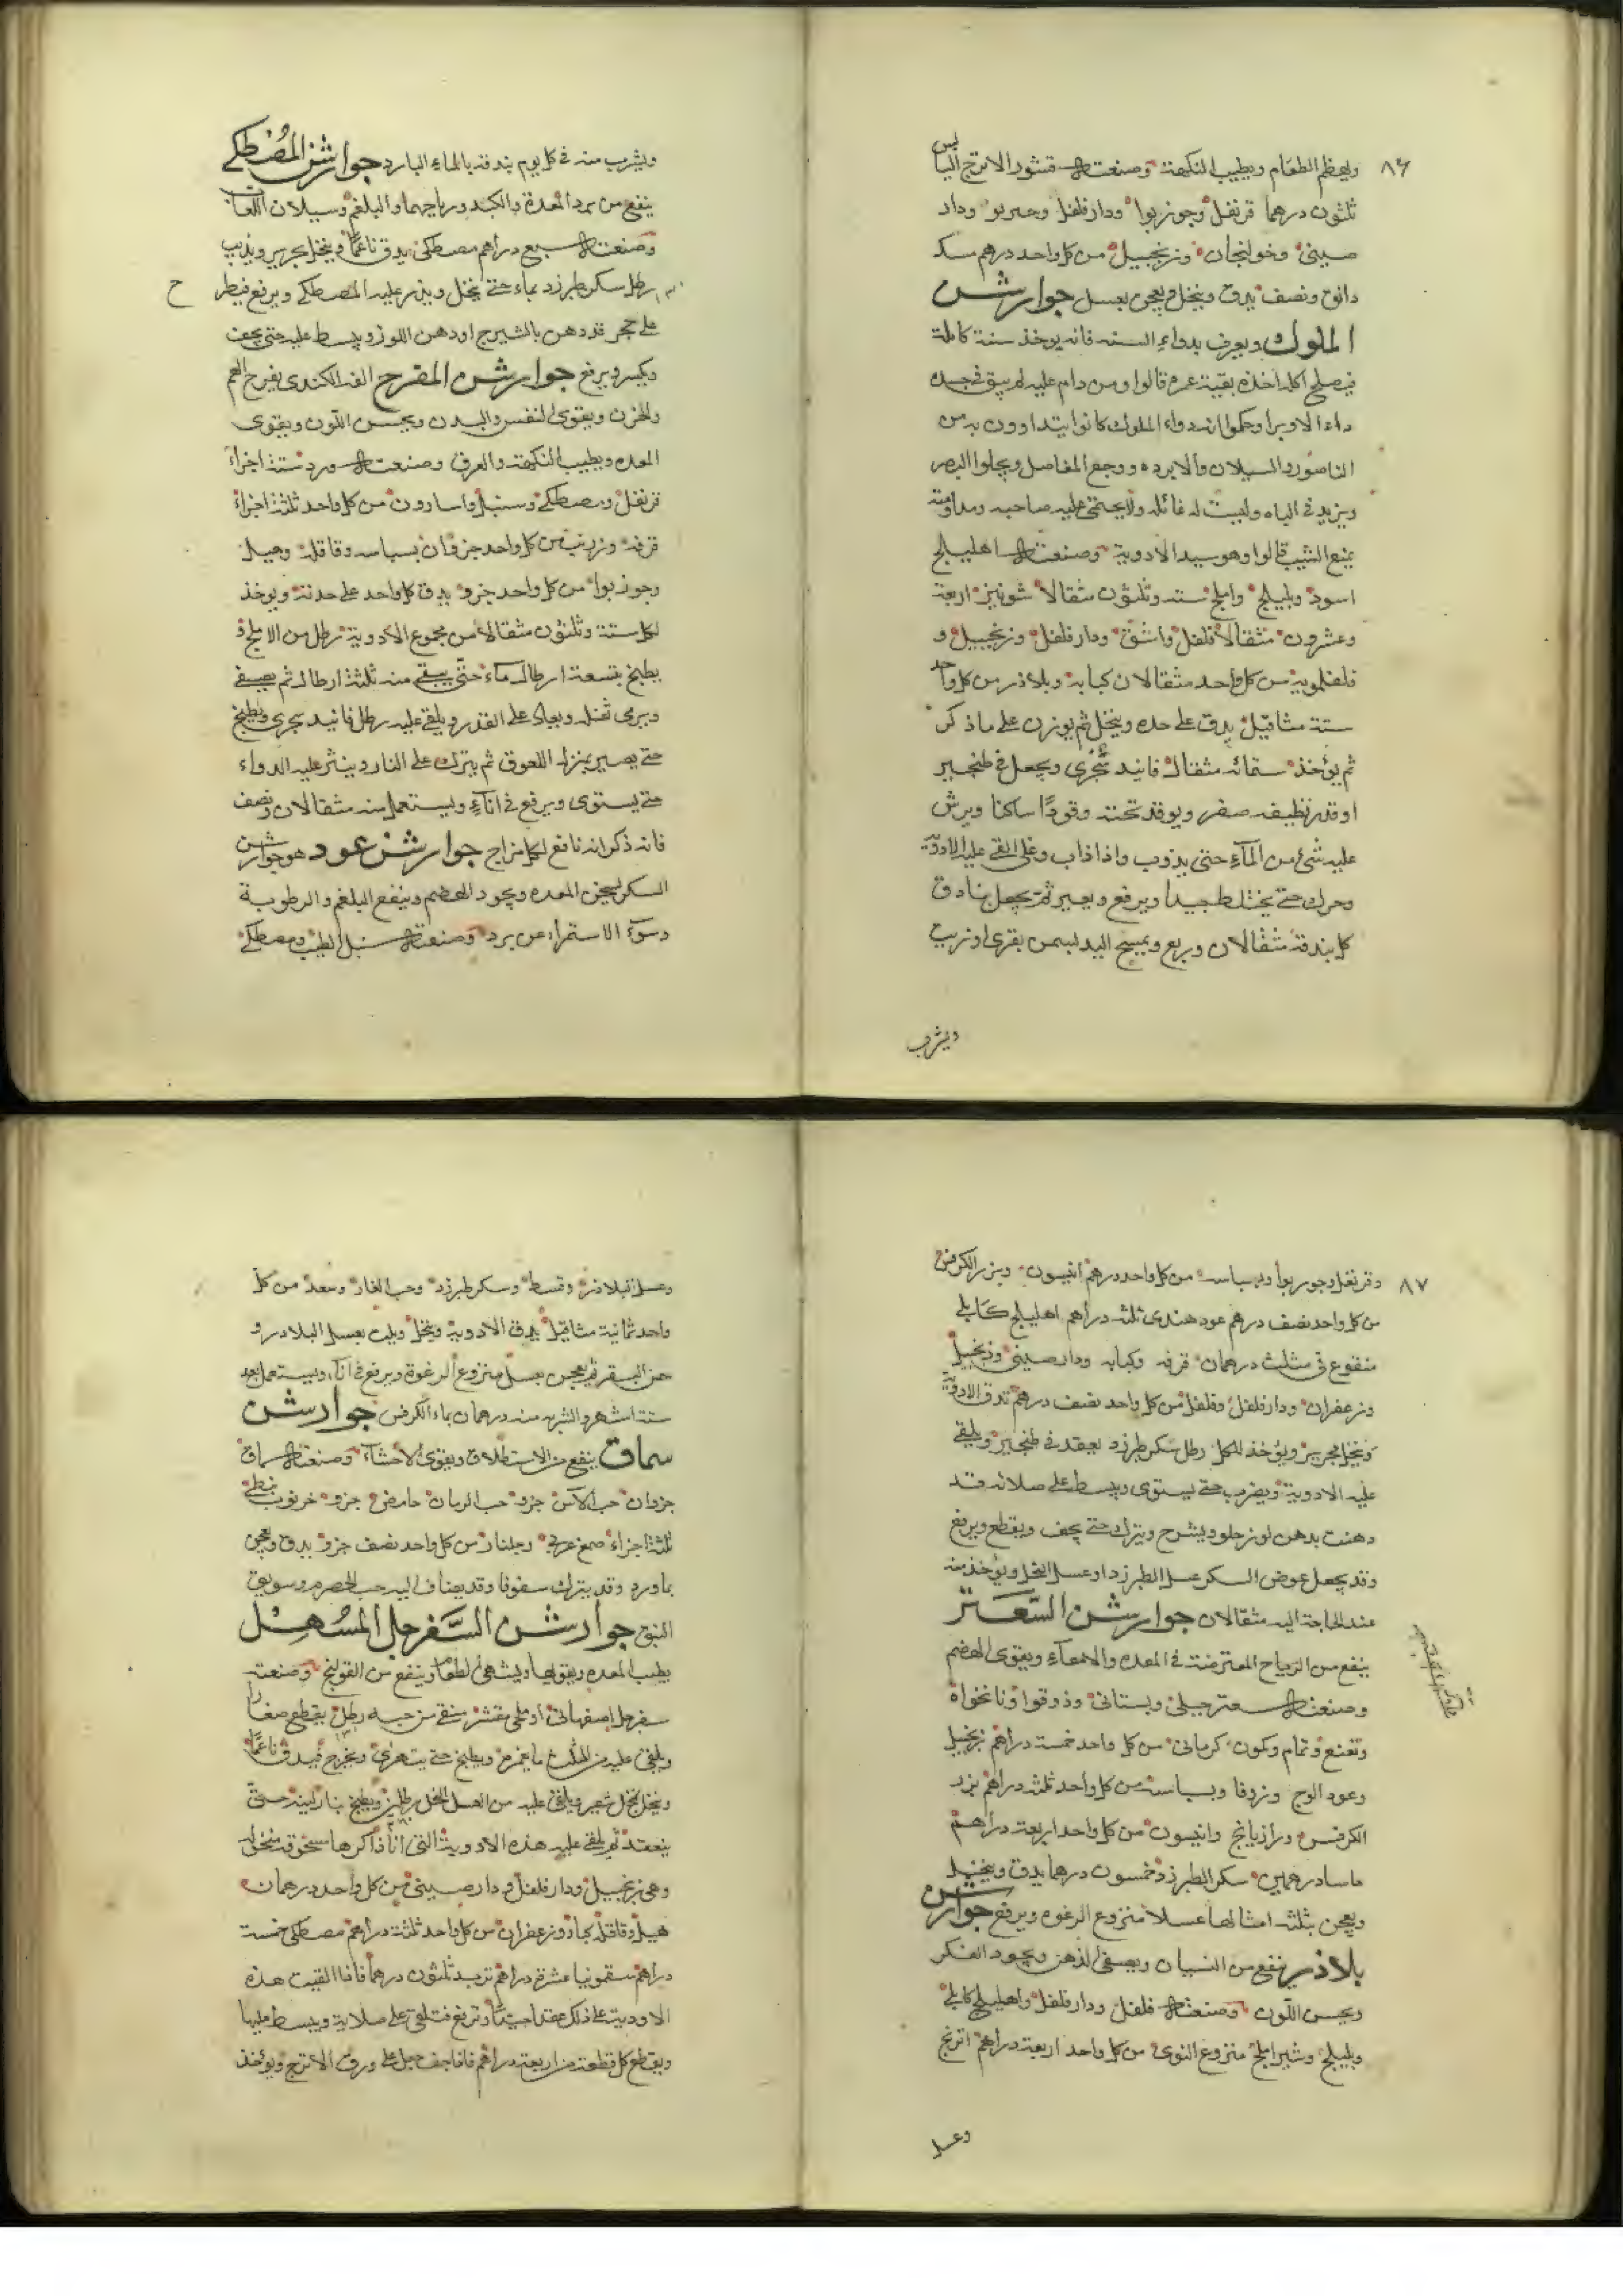 ٨٦
ويهضم الطعام ويطيب النكهة وصنعته قشور الاترج اليابس
ثلثون درهما قرنفل وجوزبوا ودارفلفل وخيربوا ودار
صينى وخولنجان وزنجبيل من كل واحد درهم مسك
دانق ونصف يدق وينخل ويعجن بعسل جوارشن
الملوك ويعرف بدواء السنه فانه يوخذ سنة كاملة
فيصلح اكله اخذه بقية عمره قالوا ومن دام عليه لم يبق فى جسده
داء الا وبرا وحكوا انه دواء الملوك كانوا يتداوون به من
الناصور والسيلان والابرده ووجع المفاصل ويجلوا البصر
ويزيد فى الباه وليست له غائله ولا يحتمى عليه صاحبه ومداومته
يمنع الشيب قالوا وهو سيد الادوية وصنعته اهليلج
اسود وبليلج واملج سته وثلثون مثقالا شونيز اربعة
وعشرون مثقالا فلفل واشق ودارفلفل وزنجبيل و
فلفلمويه من كل واحد مثقالان كبابه وبلاذر من كل واحد
ستة مثاقيل يدق على حده وينخل ثم يوزن على ما ذكر
ثم يؤخذ ستمائه مثقال فانيد سجزى ويجعل فى طنجير
او قدر نظيفه صفر ويوقد تحته وقودًا ساكنا ويرش
عليه شئ من المآء حتى يذوب واذا ذاب وغلى القى عليه الادوية
وحرك حتى يختلط جيدا ويرفع ويصير ثم يجعل بنادق
كل بندقة مثقالان وربع ويمسح اليد بسمن بقرى او زيت
ويشرب
ويشرب منه فى كل يوم بندقه بالماء البارد جوارشن المصطكى
ينفع من برد المعدة والكبد ورياحهما والبلغم وسيلان اللعاب
وصنعته سبع دراهم مصطكى يدق ناعمًا وينخل بحرير ويذيب
رطل سكر طبرزد بماء حتى ينحل ويذر عليه المصطكى ويرفع
ح
على حجر قد دهن بالشيرج او دهن اللوز ويبسط عليه حتى يجف
ويكسر ويرفع جوارشن المفرح الفه الكندى يفرح الغم
والحزن ويقوى النفس والبدن ويحسن اللون ويقوى
المعده ويطيب النكهة والعرق وصنعته ورد ستة اجزاء
قرنفل ومصطكى وسنبل واسارون من كل واحد ثلثة اجزاء
قرفه وزرنب من كل واحد جزوان بسباسه وقاقله وهيل
وجوزبوا من كل واحد جزو يدق كل واحد على حدته ويوخذ
لكل ستة وثلثون مثقالا من مجموع الادوية رطل من الاملج و
يطبخ بتسعة ارطال مآء حتى يبقى منه ثلثة ارطال ثم يصفى
ويرمى ثفله ويعاد على القدر ويلقى عليه رطل فانيد سجزى ويطبخ
حتى يصير بمنزلة اللعوق ثم يترك على النار وينثر عليه الدواء
حتى يستوى ويرفع فى انآء ويستعمل منه مثقالان ونصف
فانه ذكر انه نافع لكل مزاج جوارشن عود هو جوارشن
السكر يسخن المعده ويجود الهضم وينفع البلغم والرطوبة
وسوء الاستمراء عن برد وصنعته سنبل الطيب ومصطكى
٨٧
وقرنفل وجوزبوا وبسباسه من كل واحد درهم انيسون وبزر الكرفس
من كل واحد نصف درهم عود هندى ثلثه دراهم اهليلج كابلى
منقوع فى مثلث درهمان قرفه وكبابه ودارصينى وزنجبيل
وزعفران ودارفلفل وفلفل من كل واحد نصف درهم تدق الادوية
وينخل بحرير ويؤخذ للكل رطل سكر طبرزد يعقد فى طنجير ويلقى
عليه الادوية ويضرب حتى يستوى ويبسط على صلائه قد
دهنت بدهن لوز حلو ويشرح ويترك حتى يجف ويقطع ويرفع
وقد يجعل عوض السكر عسل الطبرزد او عسل النحل ويؤخذ منه
عند الحاجة اليه مثقالان جوارشن السعتر
ينفع من الرياح المعترضة فى المعده والامعآء ويقوى الهضم
وصنعته سعتر جبلى وبستانى وذوقوا ونانخواة
ونعنع ونمام وكمون كرمانى من كل واحد خمسة دراهم زنجبيل
وعود الوج وزوفا وبسباسه من كل واحد ثلثه دراهم بزر
الكرفس ورازيانج وانيسون من كل واحد اربعة دراهم
ماسا درهمين سكر الطبرزد خمسون درهما يدق وينخل
ويعجن بثلثه امثالها عسلا منزوع الرغوه ويرفع جوارشن
بلاذر ينفع من النسيان ويصفى الذهن ويجود الفكر
ويحسن اللون وصنعته فلفل ودارفلفل واهليلج كابلى
وبليلج وشير املج منزوع النوى من كل واحد اربعة دراهم اترنج
وعسل
وعسل البلاذر وقسط وسكر طبرزد وحب الغار وسعد من كل
واحد ثمانية مثاقيل يدق الادوية وينخل ويلت بعسل البلادر و
سمن البقر ثم يعجن بعسل منزوع الرغوة ويرفع فى انآء ويستعمل بعد
ستة اشهر والشربه منه درهمان بماء الكرفس جوارشن
سماق ينفع من الاستطلاق ويقوى الاحشآء وصنعته سماق
جزوان حب الآس جزو حب الرمان حامض جزو خرنوب نبطى
ثلثة اجزاء صمغ عربى وجلنار من كل واحد نصف جزو يدق ويعجن
بماورد وقد يترك سفوفا وقد يضاف اليه حب الحصرم وسويق
النبق جوارشن السفرجل المسهل
يطيب المعده ويقويها ويشهى الطعام وينفع من القولنج وصنعته
سفرجل اصفهانى او ملى مقشر منقى من حبه رطل يقطع صغارا
ويلقى عليه من المثلث ما يغمره ويطبخ حتى يتهرى ويخرج فيدق ناعمًا
وينخل بمنخل شعر ويلقى عليه من العسل النحل رطلين ويطبخ بنار لينه حتى
ينعقد ثم يلقى عليه هذه الادوية التى انا ذاكرها مسحوقة منخوله
وهى زنجبيل ودارفلفل ودارصينى من كل واحد درهمان
هيل وقاقله كبار وزعفران من كل واحد ثلثة دراهم مصطكى خمسة
دراهم سقمونيا عشرة دراهم تربد ثلثون درهما فاذا القيت هذه
الادوية على ذلك عقد جيدًا ثم يرفع فتلقى على صلاية ويبسط عليها
ويقطع كل قطعة من اربعة دراهم فاذا جف جعل على ورق الاترج ويؤخذ